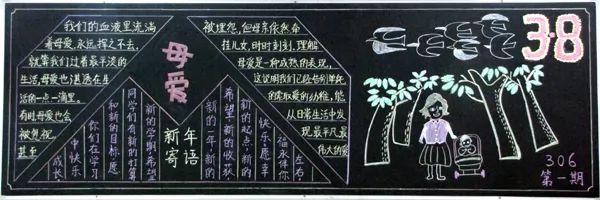 我们的血液里流淌
着母爱,永远挥之不去,
就算我们过着最平淡的
生活,母爱也湛透在生
活的一点一滴里。
有时母爱也会
被忽视
甚至
母爱
被埋怨,但母亲依然牵
挂儿女,时时刻刻,理解
母爱是一种成熟的表现,
这说明我们已经告别单纯
的索取爱的幼稚,能
从日常生活中发
现最平凡最
伟大的爱
新年
寄语
新的一年,新的
希望,新的收获
新的起点,新的
快乐,愿幸
福永伴你
左右。
新的学期,希望
同学们有新的打算
和新的目标,愿
你们在学习
中快乐
成长。
3·8
306
第一期